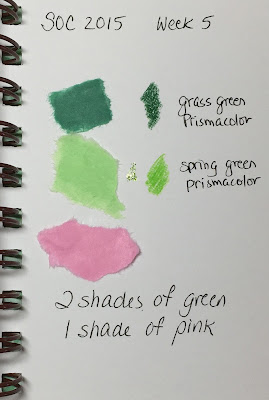 SOC 2015 Week 5
grass green
Prismacolor
spring green
prismacolor
2 shades of green
1 shade of pink